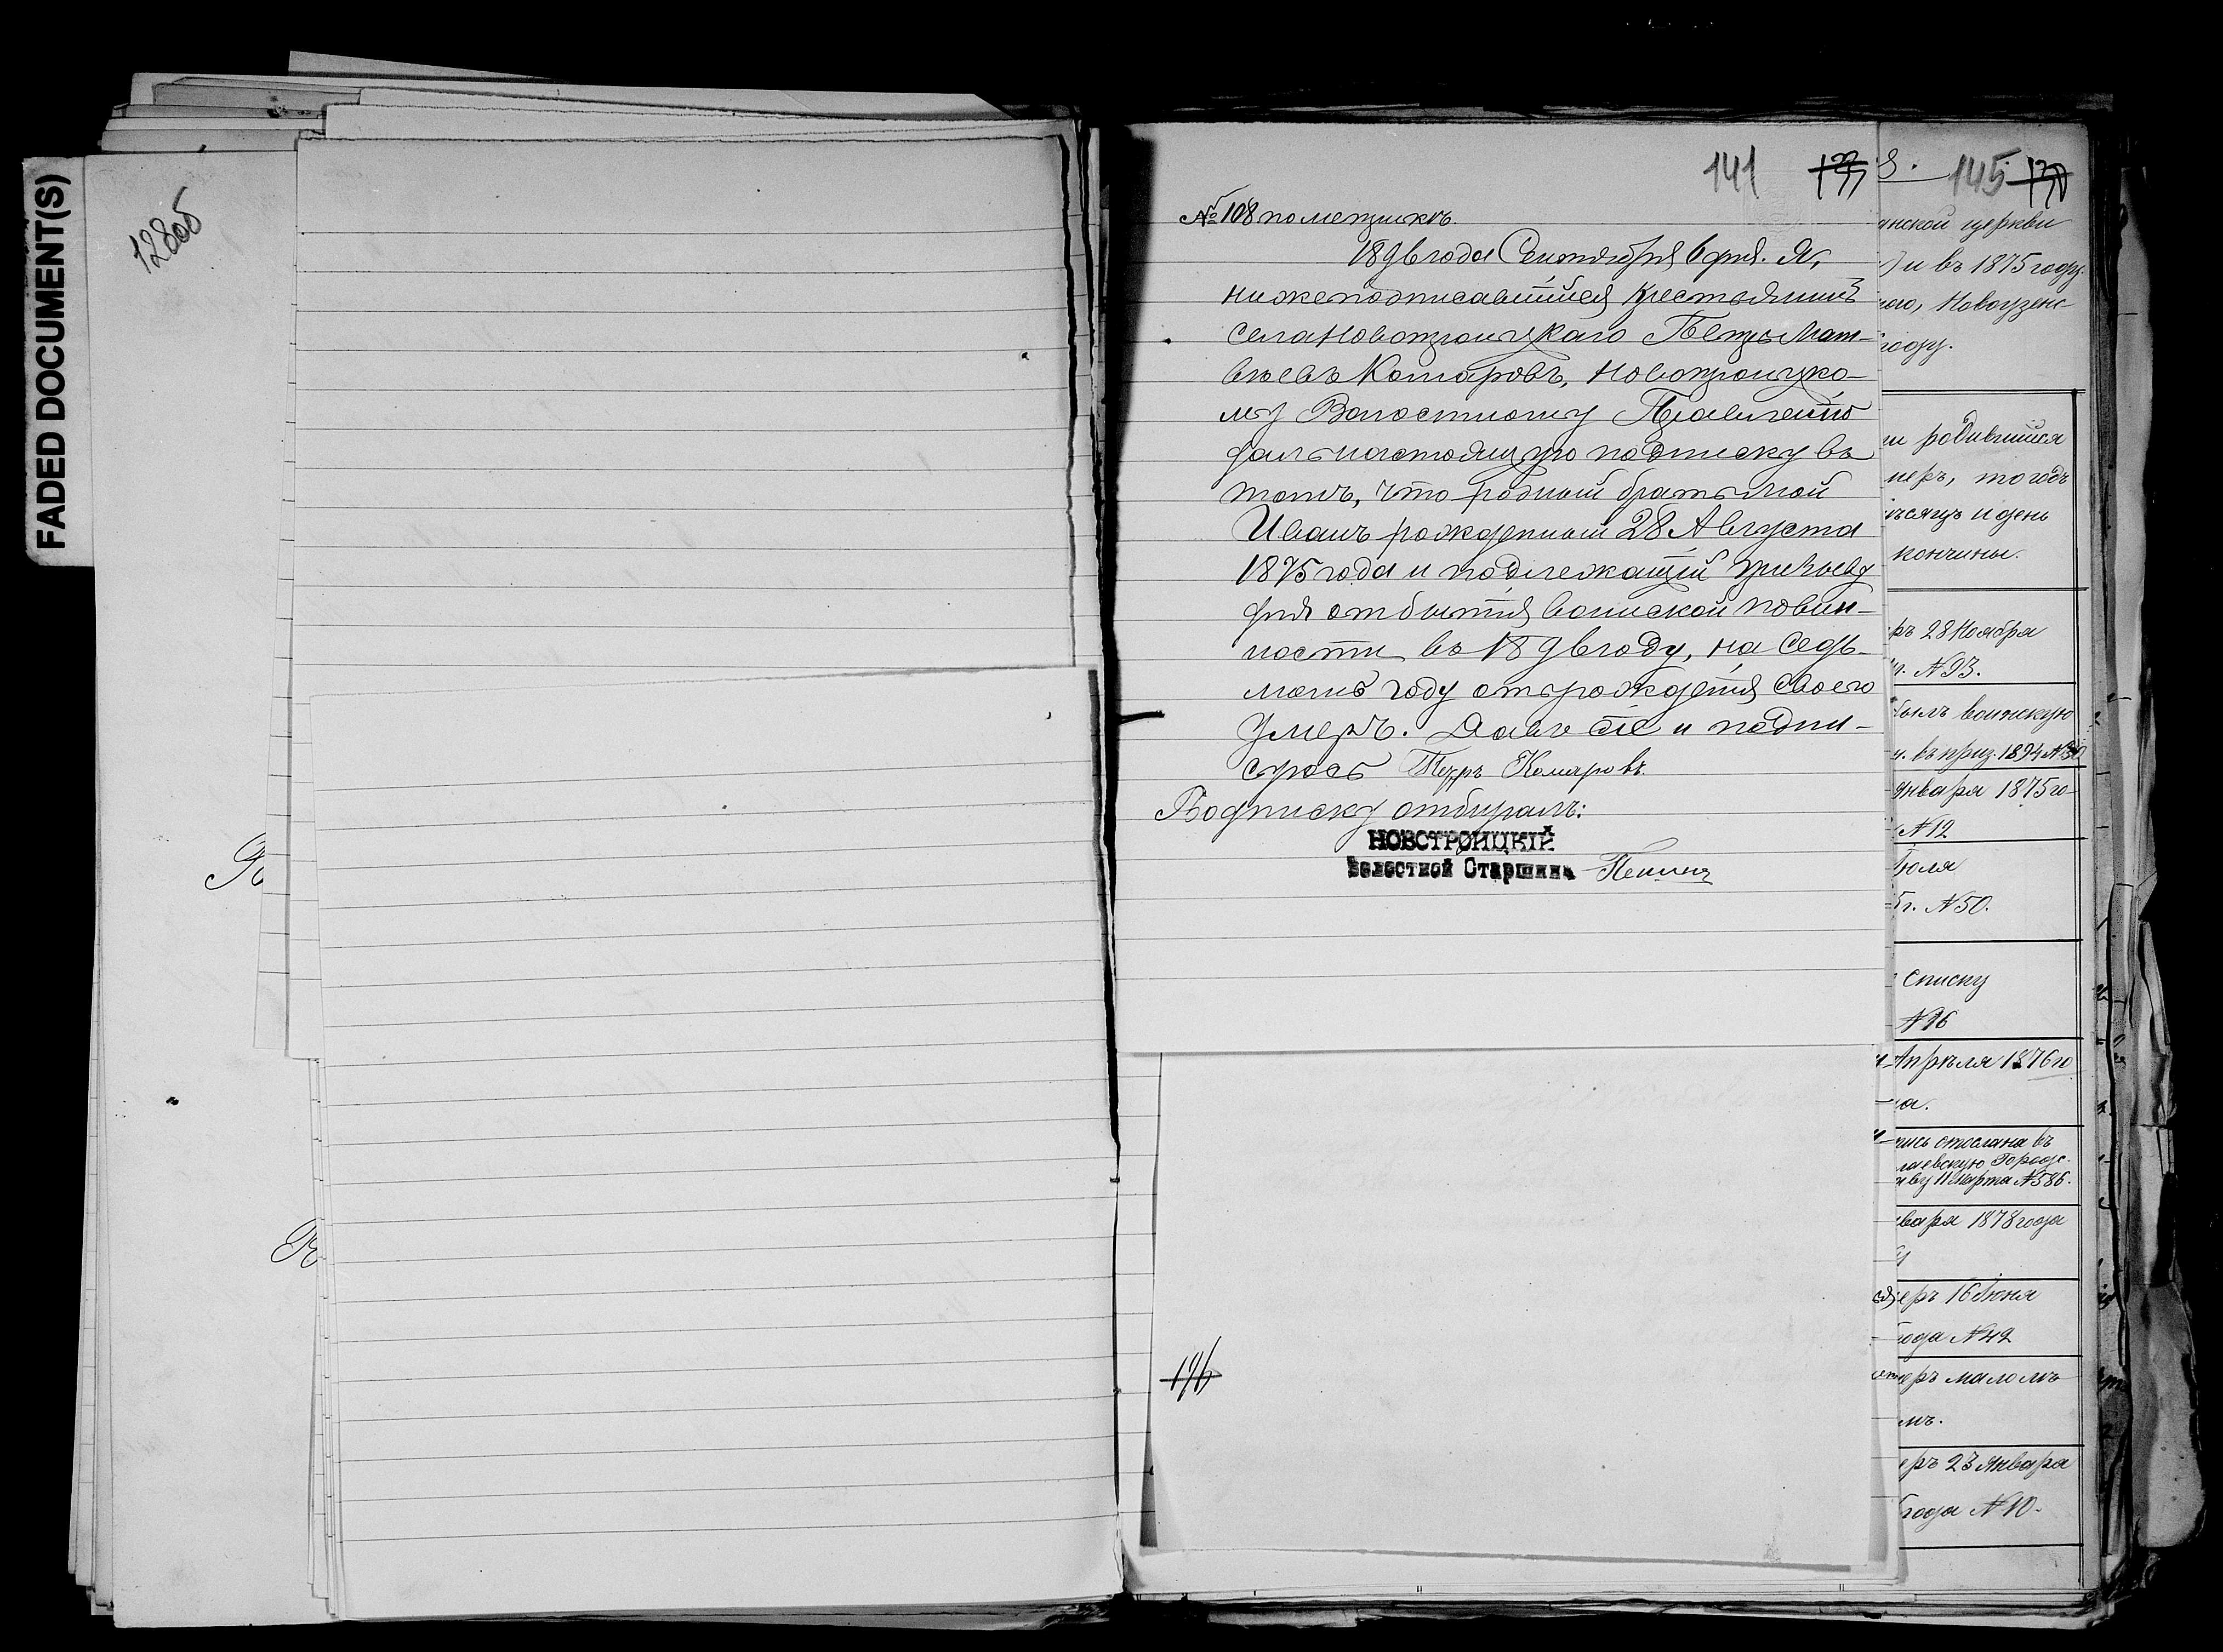 FADED DOCUMENT(S)
12805
141
№ 108 по метрикѣ.
1896 года Сентября 6 дня. Я,
нижеподписавшійся крестьянинъ
села Новотроицкаго Петръ Мат-
вѣевъ Комаровъ, Новотроицко-
му Волостному Правленію
далъ настоящую подписку въ
томъ, что родной братъ мой
Иванъ рожденный 28 Августа
1875 года и подлежащій призыву
для отбытія воинской повин-
ности въ 1896 году, на седь-
момъ году отъ рожденія своего
умеръ. Далъ сіе и подпи-
суюсь Петръ Комаровъ.
Подписку отбиралъ:
НОВОТРОИЦКІЙ
Волостной Старшина
196
145
анской церкви
и въ 1875 году.
ого, Новоузенс-
году.
и родившійся
меръ, то годъ
мѣсяцъ и день
кончины.
ръ 28 Ноября
г. № 93.
былъ воинскую
и. въ приз. 1894 № 30
Января 1875 го-
№ 12
Іюля
г. № 50.
списку
№ 16
Апрѣля 1876 го
на.
пись отослана въ
лаевскую Городс.
аву 11 Марта № 586.
варя 1878 года
меръ 16 Іюня
года № 42
меръ маломъ
мъ.
еръ 23 Января
года № 10.